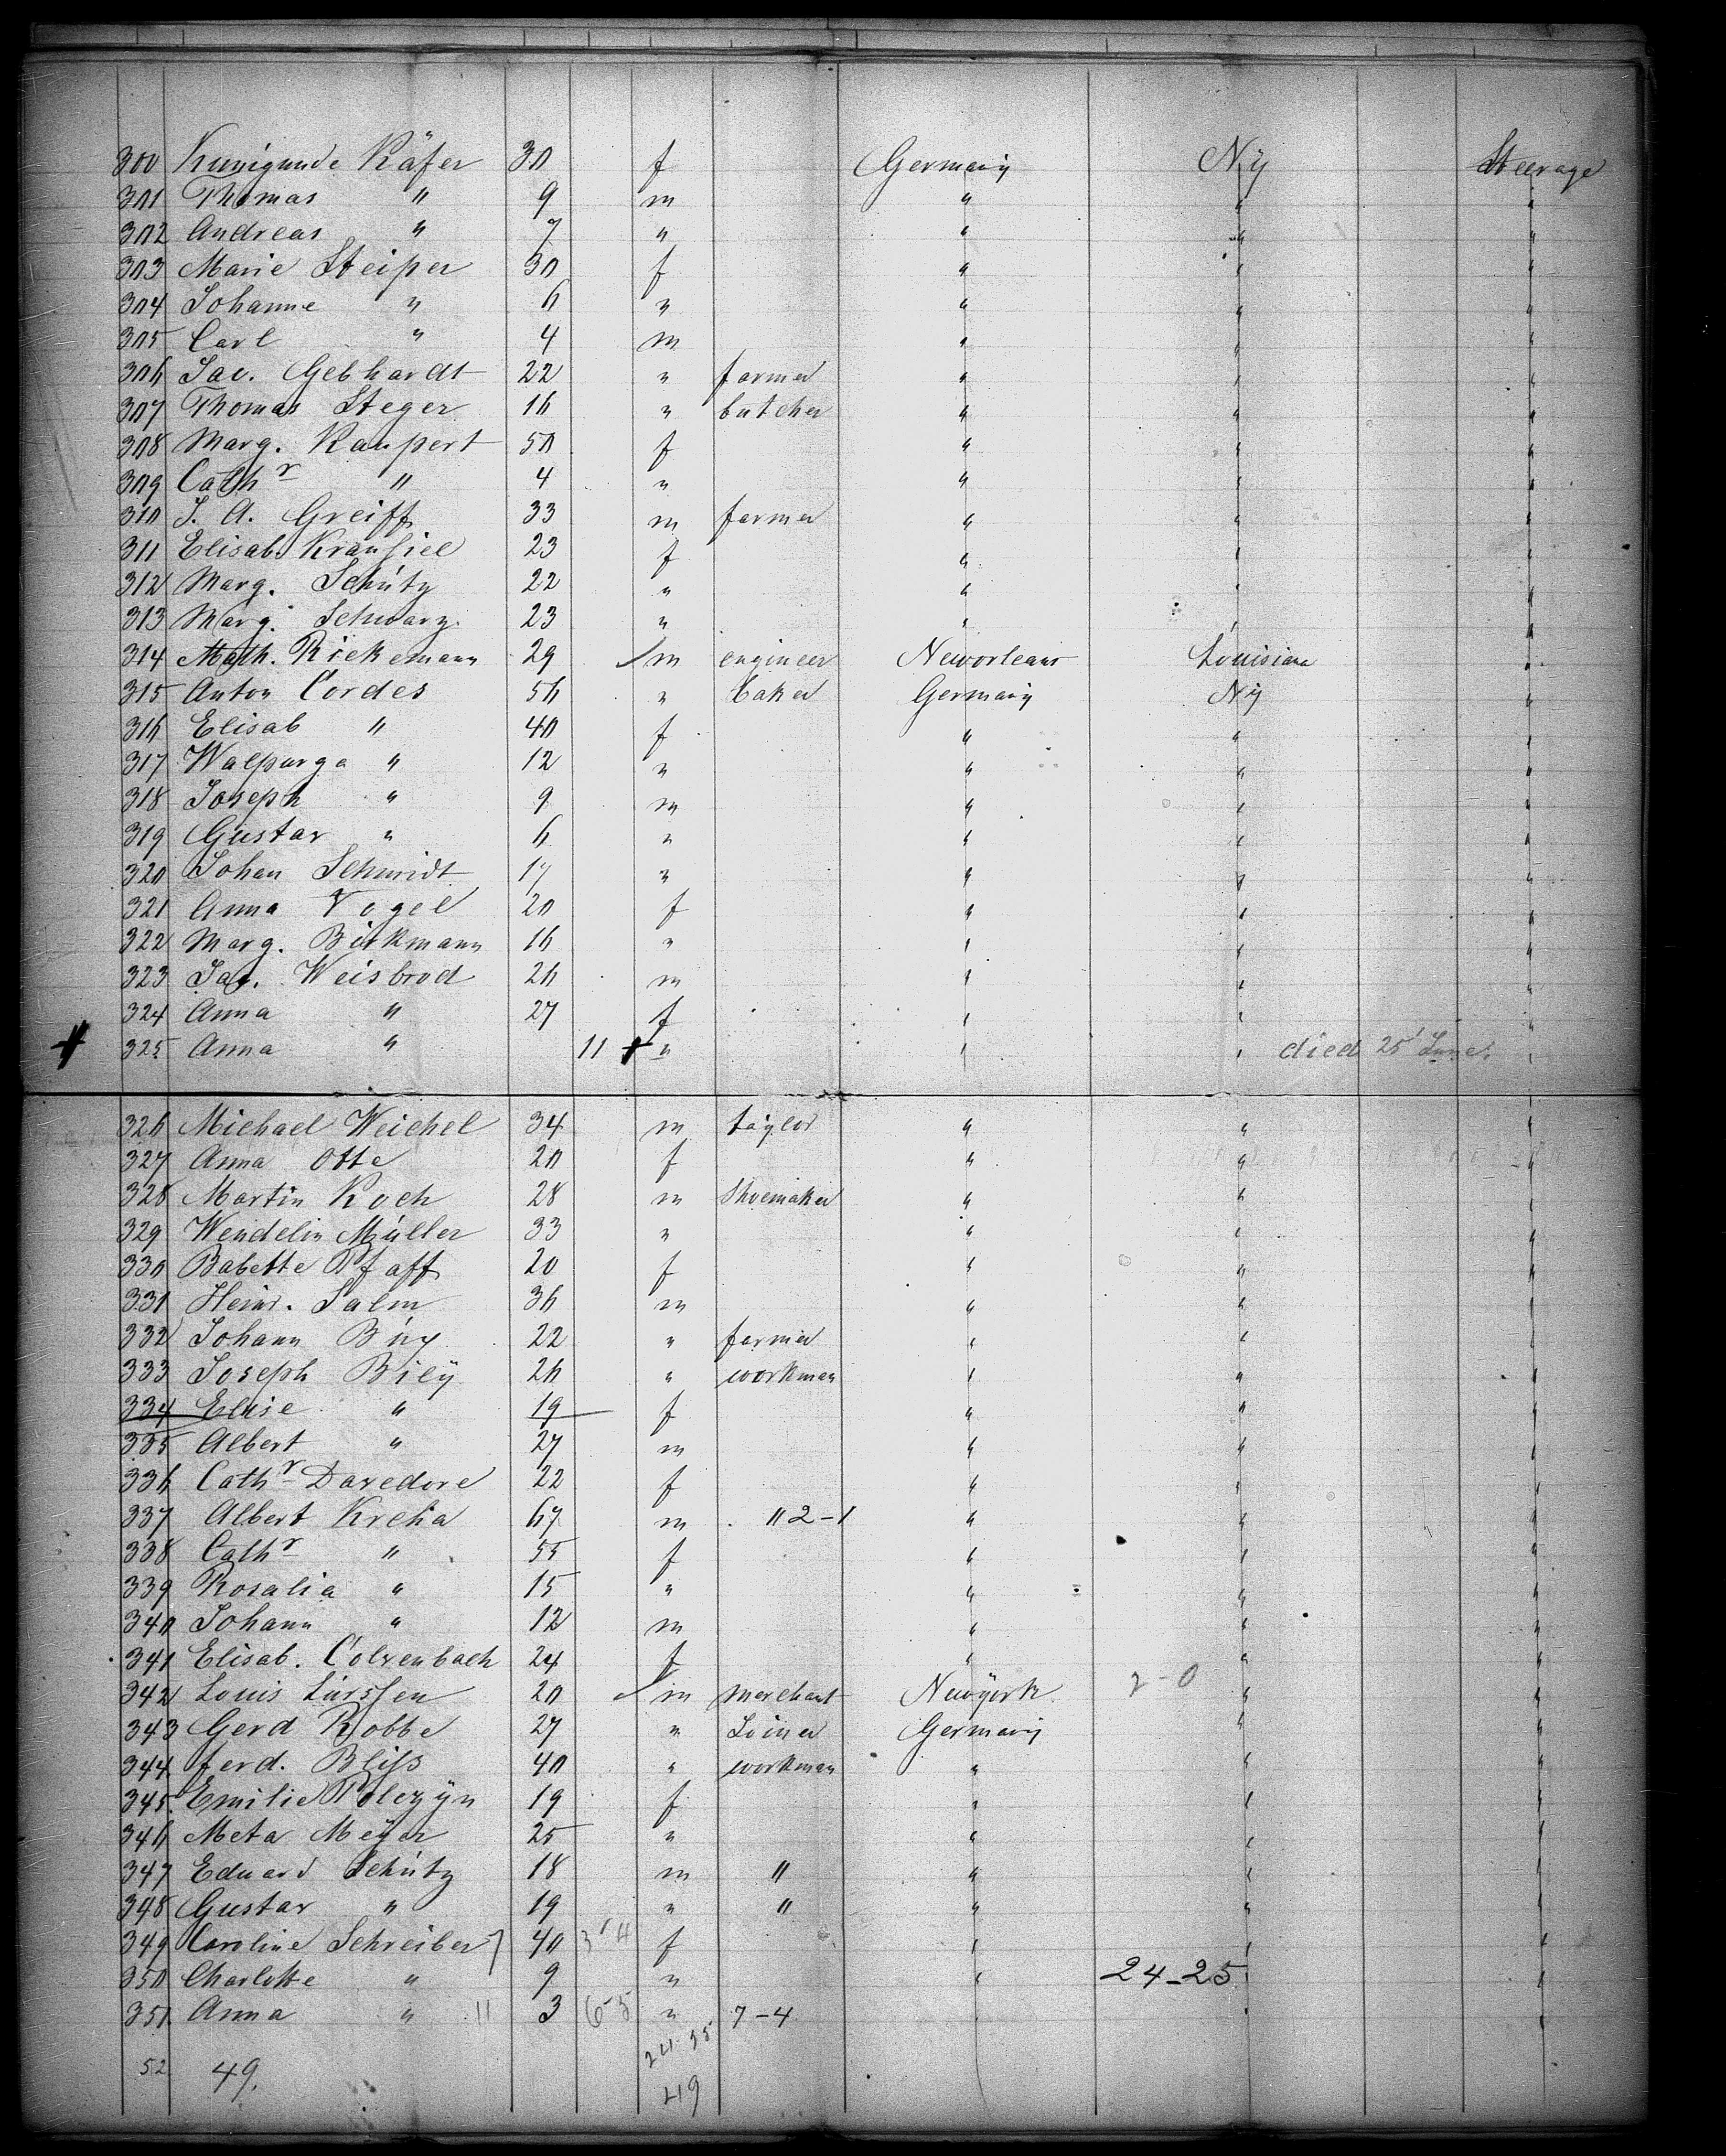 300 Kunigunde Käfer 30 f Germany Ny Steerage
301 Thomas " 9 m " " "
302 Andreas " 7 " " " "
303 Marie Steiper 30 f " " "
304 Johanne " 6 " " " "
305 Carl " 4 m " " "
306 Jac. Gebhardt 22 " farmer " " "
307 Thomas Steger 16 " butcher " " "
308 Marg. Raupert 50 f " " "
309 Cathr " 4 " " " "
310 J. A. Greiff 33 m farmer " " "
311 Elisab. 23 f " " "
312 Marg. Schütz 22 " " " "
313 Marg. Schwarz 23 " " " "
314 Math. Riekemann 29 m engineer Neworleans Louisiana "
315 Anton Cordes 56 " baker Germany Ny "
316 Elisab " 40 f " " "
317 Walpurga " 12 " " " "
318 Joseph " 9 m " " "
319 Gustav " 6 " " " "
320 Johan Schmidt 17 " " " "
321 Anna Vogel 20 f " " "
322 Marg. Birkmann 16 " " " "
323 Jac. Weisbrod 26 m " " "
324 Anna " 27 f " " "
325 Anna " 11 " " " died 25 June "
326 Michael Weichel 34 m taylor " " "
327 Anna Otte 20 f " " "
328 Martin Koch 28 m Shoemaker " " "
329 Wendelin Müller 33 " " " "
330 Babette Pfaff 20 f " " "
331 Heinr. Salm 36 m " " "
332 Johann 22 " farmer " " "
333 Joseph Bilÿ 26 " workman " " "
334 Elise " 19 f " " "
335 Albert " 27 m " " "
336 Cathr 22 f " " "
337 Albert 67 m " 2-1 " " "
338 Cathr " 55 f " " "
339 Rosalia " 15 " " " "
340 Johann " 12 m " " "
341 Elisab. Colzenbach 24 f " " "
342 Louis Lürssen 20 m merchant Newÿork 2-0 " "
343 Gerd Robbe 27 " Joiner Germany " "
344 ferd. Bliss 40 " workman " " "
345 Emilie Polezÿn 19 f " " "
346 Meta Meÿer 25 " " " "
347 Eduard Schütz 18 m " " " "
348 Gustav " 19 " " " " "
349 Caroline Schreiber 40 f " " "
350 Charlotte " 9 " " 24-25 " "
351 Anna " 11 3 6-5 " 7-4 " " "
52 49. 24 25
49